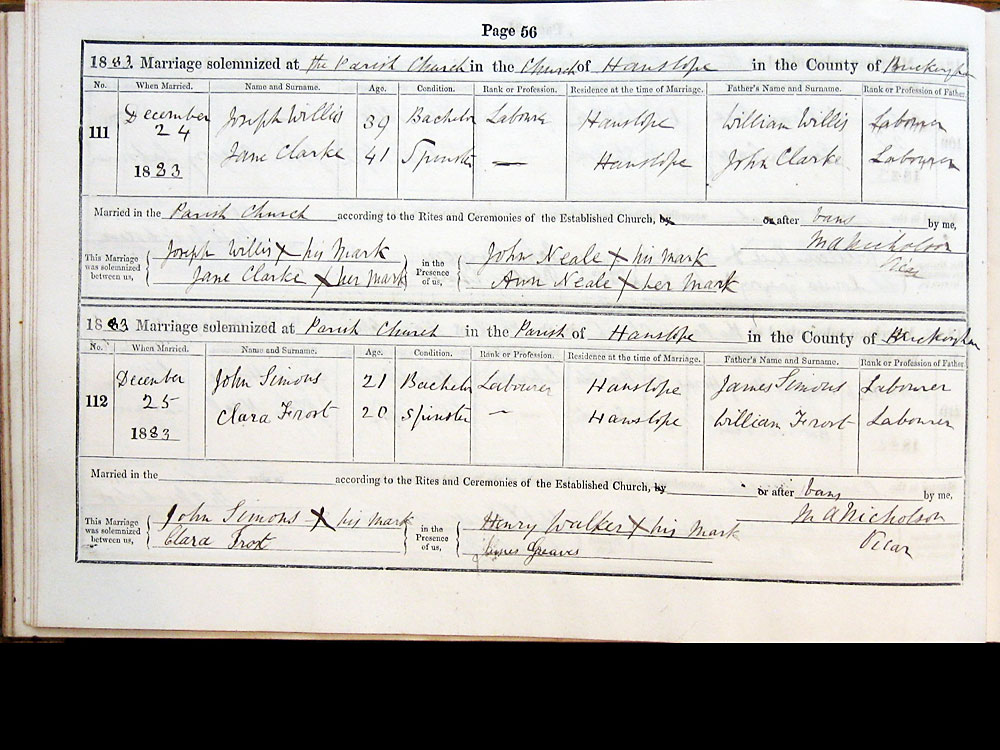 Page 56
1883. Marriage solemnized at the Parish Church in the Church of Hanslope in the County of Buckingham
No. When Married. Name and Surname. Age. Condition. Rank or Profession. Residence at the time of Marriage. Father's Name and Surname. Rank or Profession of Father.
111 December 24 1883 Joseph Willis 39 Bachelor Labourer Hanslope William Willis Labourer
Jane Clarke 41 Spinster — Hanslope John Clarke Labourer
Married in the Parish Church according to the Rites and Ceremonies of the Established Church, by or after bans by me,
M A Nicholson
Vicar
This Marriage was solemnized between us, Joseph Willis X his Mark in the Presence of us, John Neale X his mark
Jane Clarke X her Mark Ann Neale X her Mark
1883 Marriage solemnized at Parish Church in the Parish of Hanslope in the County of Buckingham
No. When Married. Name and Surname. Age. Condition. Rank or Profession. Residence at the time of Marriage. Father's Name and Surname. Rank or Profession of Father
112 December 25 1883 John Simons 21 Bachelor Labourer Hanslope James Simons Labourer
Clara Frost 20 Spinster — Hanslope William Frost Labourer
Married in the according to the Rites and Ceremonies of the Established Church, by or after bans by me,
M A Nicholson
Vicar
This Marriage was solemnized between us, John Simons X his Mark in the Presence of us, Henry Walker X his Mark
Clara Frost Greaves